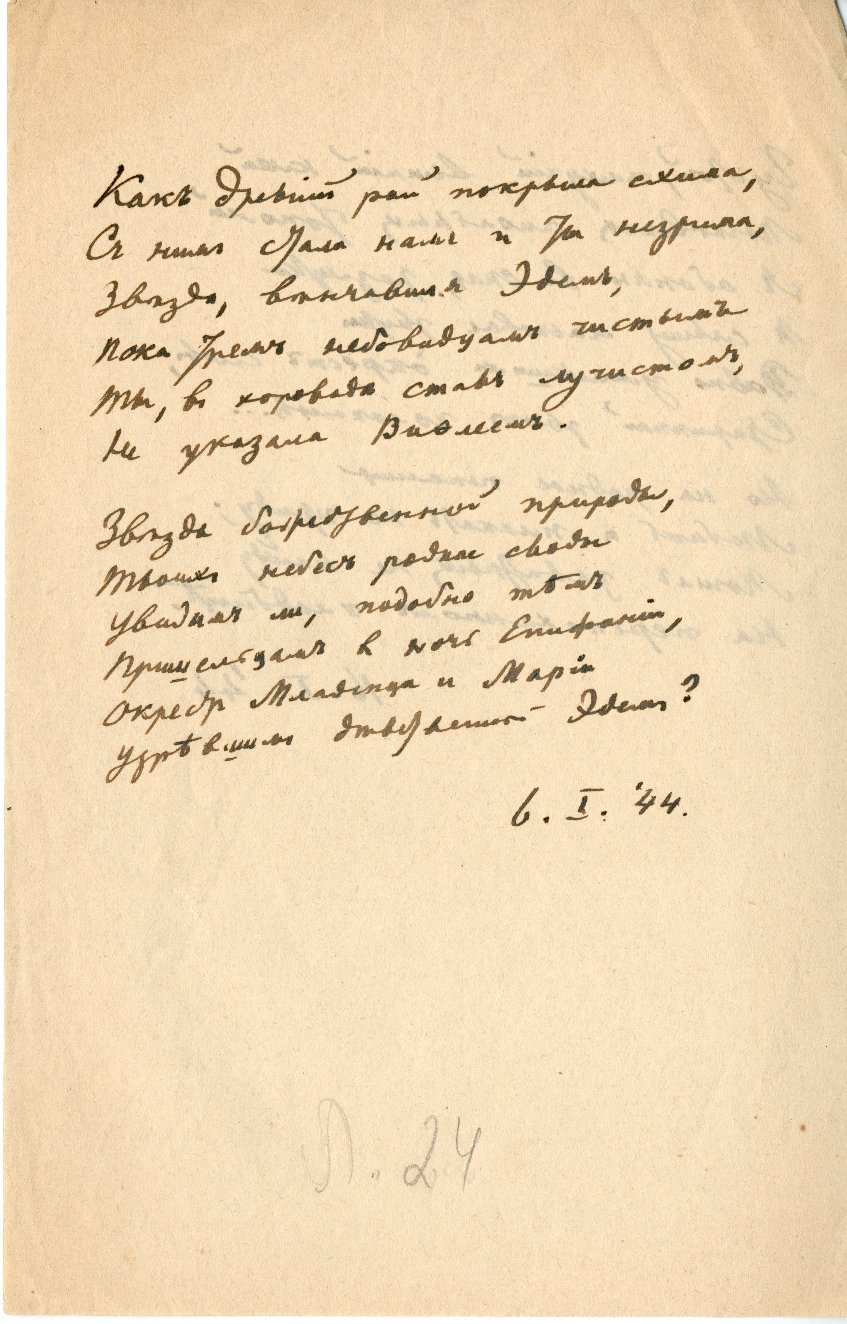 Какъ древній рай покрыла схима,
Съ нимъ стала намъ и ты незрима,
Звѣзда, вѣнчавшая Эдемъ,
Пока тремъ небовидцамъ чистымъ
Ты, въ хороводѣ ставъ лучистомъ,
Не указала Виѳлеемъ.
Звѣзда божественной природы,
Твоихъ небесъ родные своды
Увидимъ ли, подобно тѣмъ
Пришельцамъ въ ночь Епифаніи,
Окрестъ Младенца и Маріи
Узрѣвшимъ девственный Эдемъ?
6. I. '44.
Л. 24